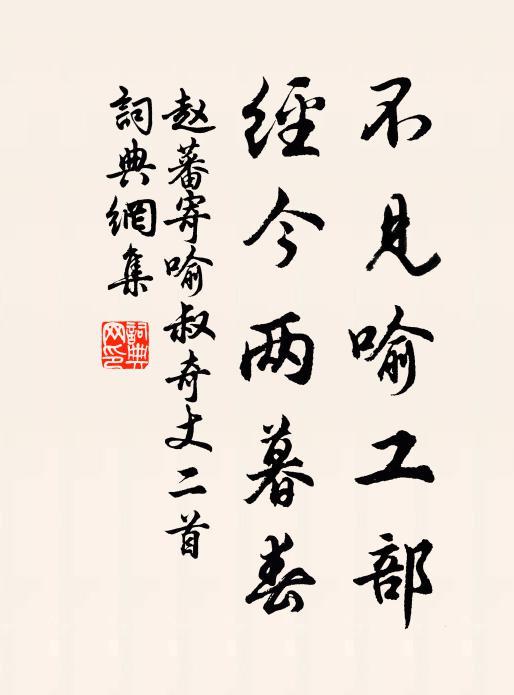 不見喻工部
經今两暮春
赵蕃寄喻叔奇丈二首
詞典網集
詞典网印